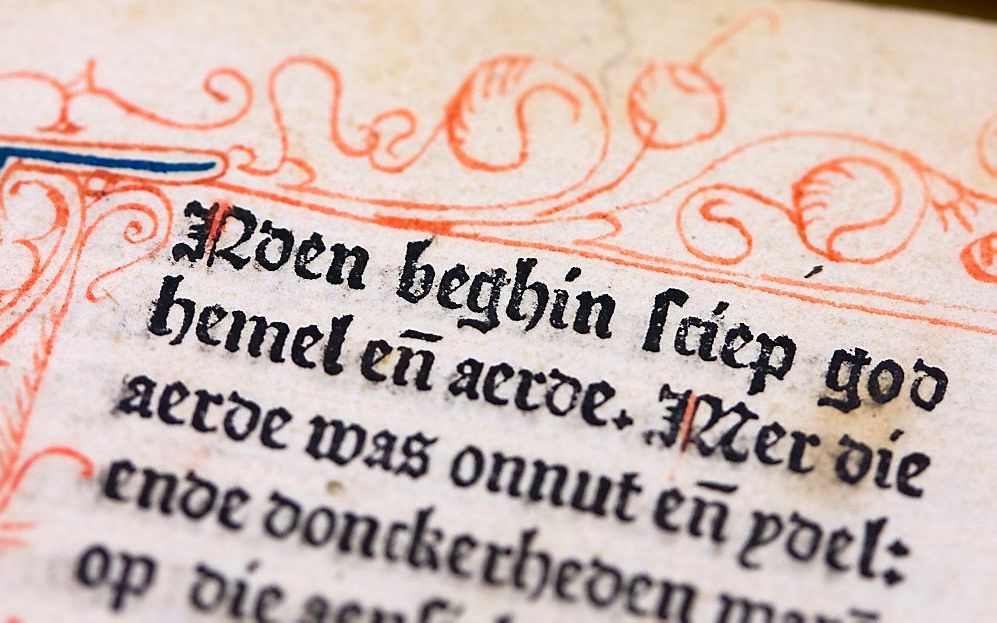 Nden beghin ſciep god
hemel en̄ aerde. Mer die
aerde was onnut en̄ ydel:
ende donckerheden
op die